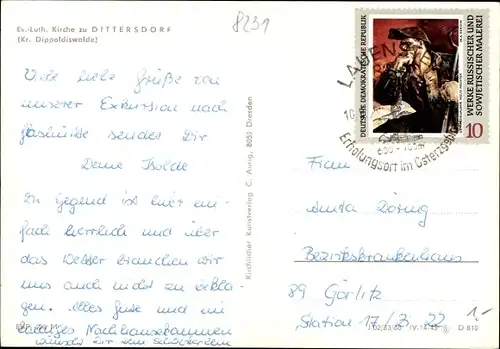 Ev.-Luth. Kirche zu DITTERSDORF
(Kr. Dippoldiswalde)
8231
Viele liebe Grüße von
unserer Exkursion nach
Glashütte sendet Dir
Deine Isolde
Die Gegend ist hier ein-
fach herrlich und über
das Wetter brauchen wir
uns auch nicht zu bekla-
gen. Alles Gute und ein
baldiges Nachhausekommen
wünscht Dir dein
Kirchlicher Kunstverlag C. Aurig, 8053 Dresden
DEUTSCHE DEMOKRATISCHE REPUBLIK
WERKE RUSSISCHER UND
SOWJETISCHER MALEREI
10
Erholungsort im Osterzgeb
Frau
Anita Döring
Bezirkskrankenhaus
89 Görlitz
Station 17/Zi. 22
IV-14-45 D 810
1.-